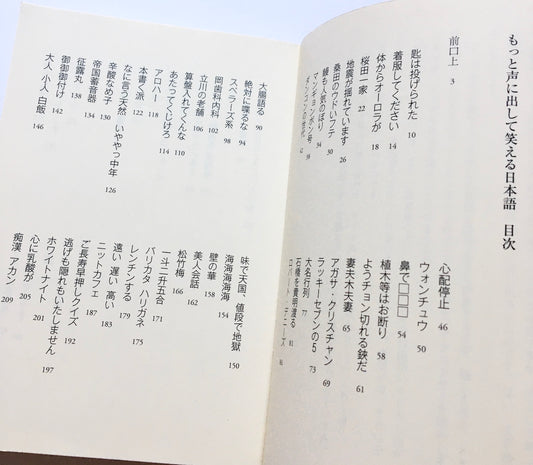 もっと声に出して笑える日本語　目次
前口上 3
匙は投げられた 10
着服してください 14
体からオーロラが 18
桜田一家 22
地震が揺れています 26
桑田のうドいフテ 30
鰻も人気のぼり 34
マンギョンボン号 38
心配停止 46
ウォンチュウ 50
鼻で□□□ 54
植木等はお断り 58
ようチョン切れる鋏だ 61
妻夫木夫妻 65
アガサ・クリスチャン 69
ラッキーセブンの5 73
大名行列 77
石橋を貴明渡る 81
大腸語る 90
絶対に喋るな 94
スペラーズ系 98
岡歯科内科 102
立川の老舗 106
算盤入れてくんな 110
あたってくじけろ 114
アロハー 118
本書く派 122
なに言う天然　いややっ中年 126
辛酸なめ子 130
帝国蓄音器 134
征露丸 138
御御御付け 142
大人 小人 白飯 146
味で天国、値段で地獄 150
海海海海海 154
壁の華 158
美人会話 162
松竹梅 166
一斗二升五合 171
バリカタ ハリガネ 175
レンチンする 179
遠い 遅い 高い 183
ニットカフェ 187
ご長寿早押しクイズ 192
逃げも隠れもいたしません 197
ホワイトナイト 201
心に乳酸が 205
痴漢 アカン 209